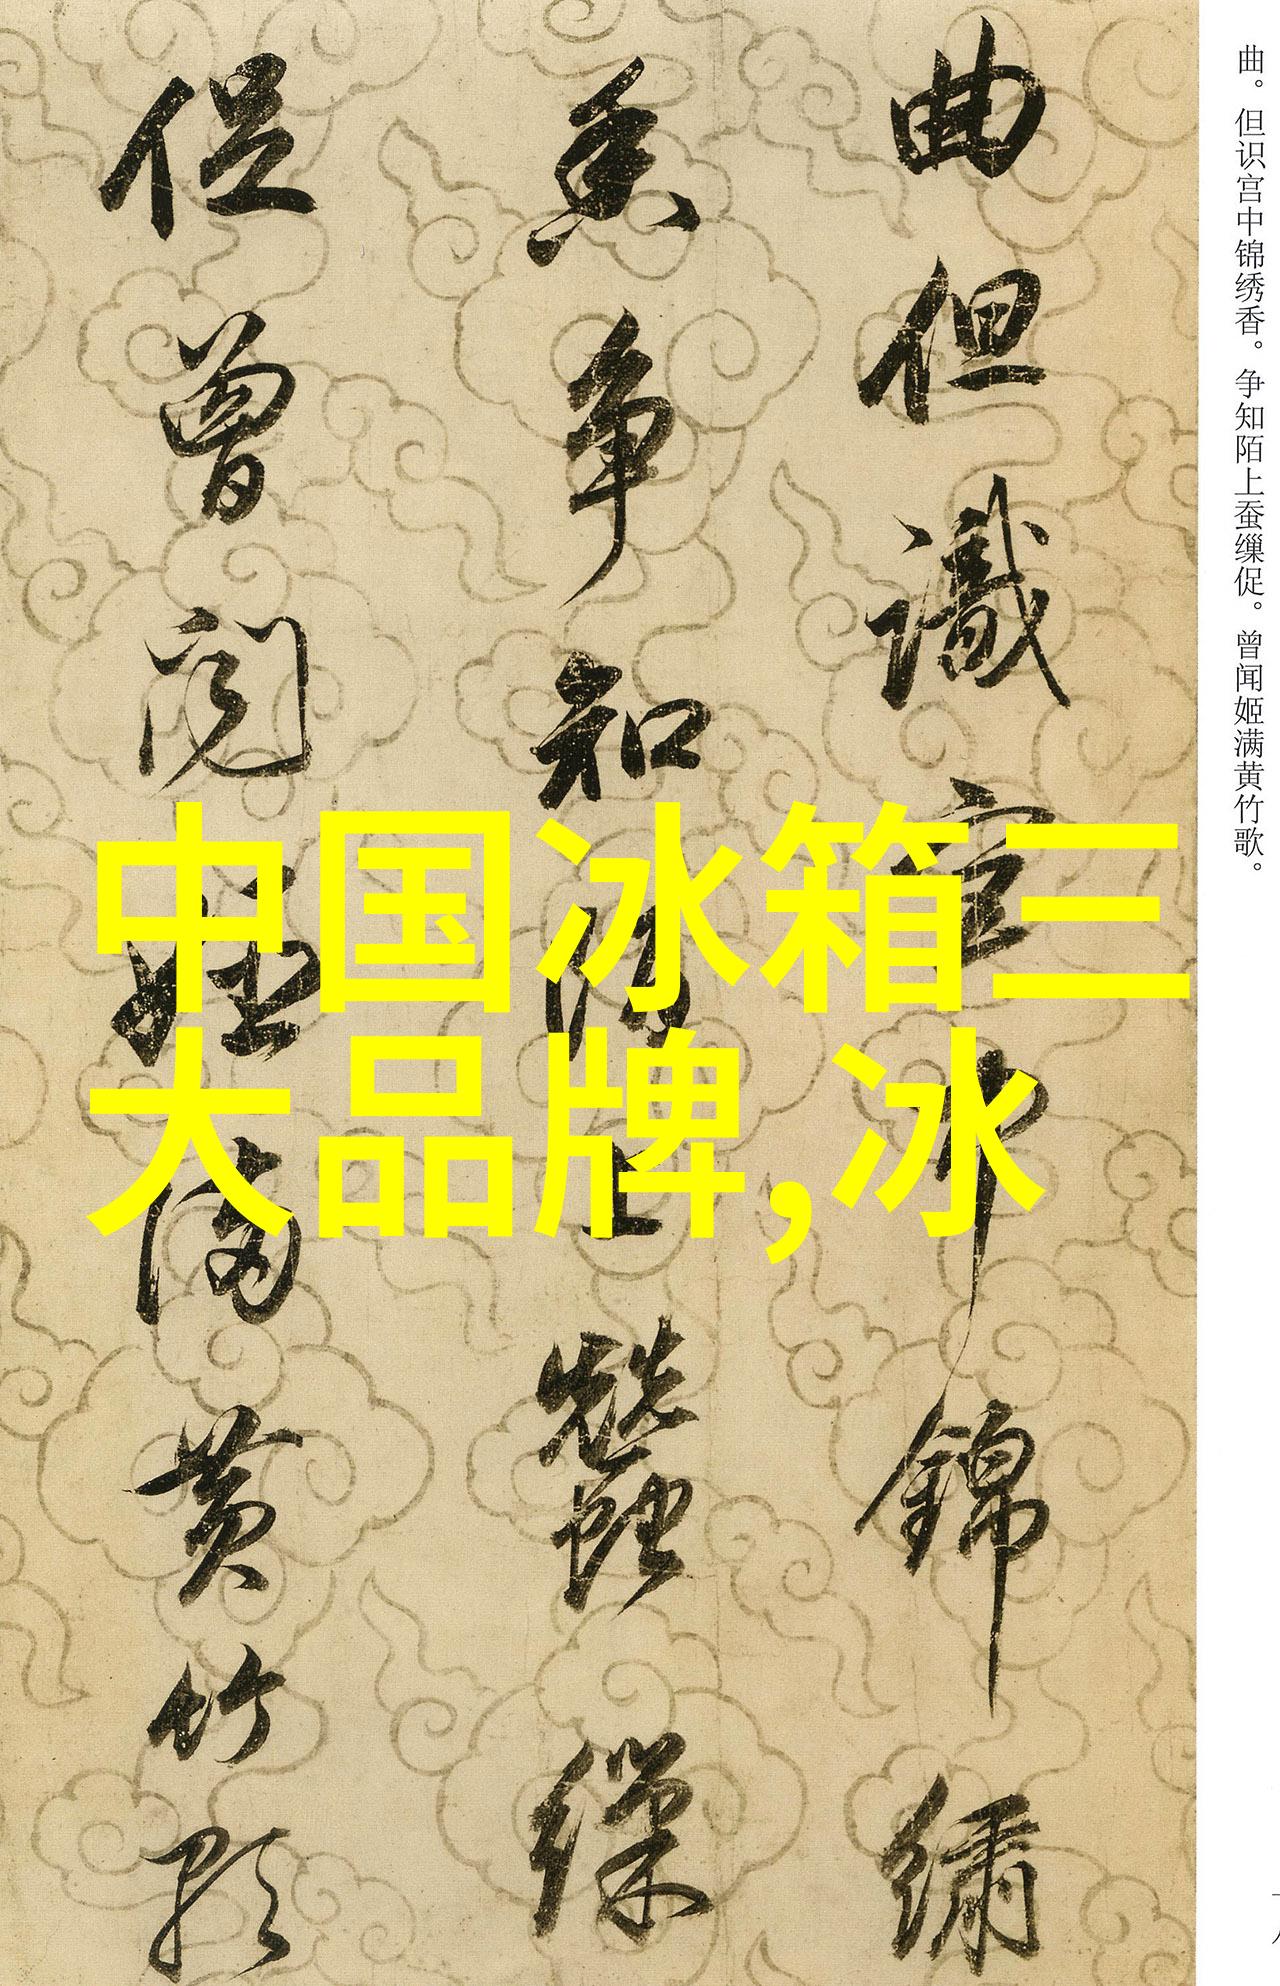 曲。但识宫中锦绣香。争知陌上蚕缫促。曾闻姬满黄竹歌。
曲但識宫中錦繡
香争知陌上蠶繅
促曾闻姬满黄竹歌
中国冰箱三
大品牌,冰